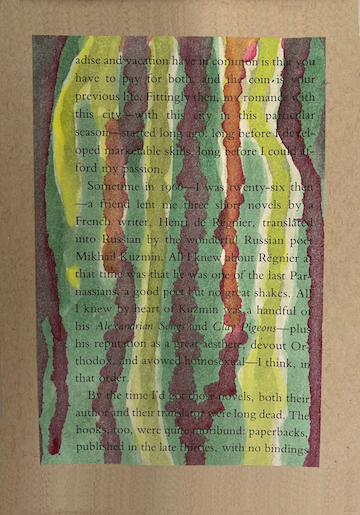 adise and vacation have in common is that you
have to pay for both, and the coin is your
previous life. Fittingly then, my romance with
this city—with this city in this particular
season—started long ago, long before I devel-
oped marketable skills, long before I could af-
ford my passion.
Sometime in 1966—I was twenty-six then
—a friend lent me three short novels by a
French writer, Henri de Régnier, translated
into Russian by the wonderful Russian poet
Mikhail Kuzmin. All I knew about Régnier at
that time was that he was one of the last Par-
nassians, a good poet but no great shakes. All
I knew by heart of Kuzmin was a handful of
his Alexandrian Songs and Clay Pigeons—plus
his reputation as a great aesthete, devout Or-
thodox, and avowed homosexual—I think, in
that order.
By the time I'd got those novels, both their
author and their translator were long dead. The
books, too, were quite moribund: paperbacks,
published in the late thirties, with no bindings